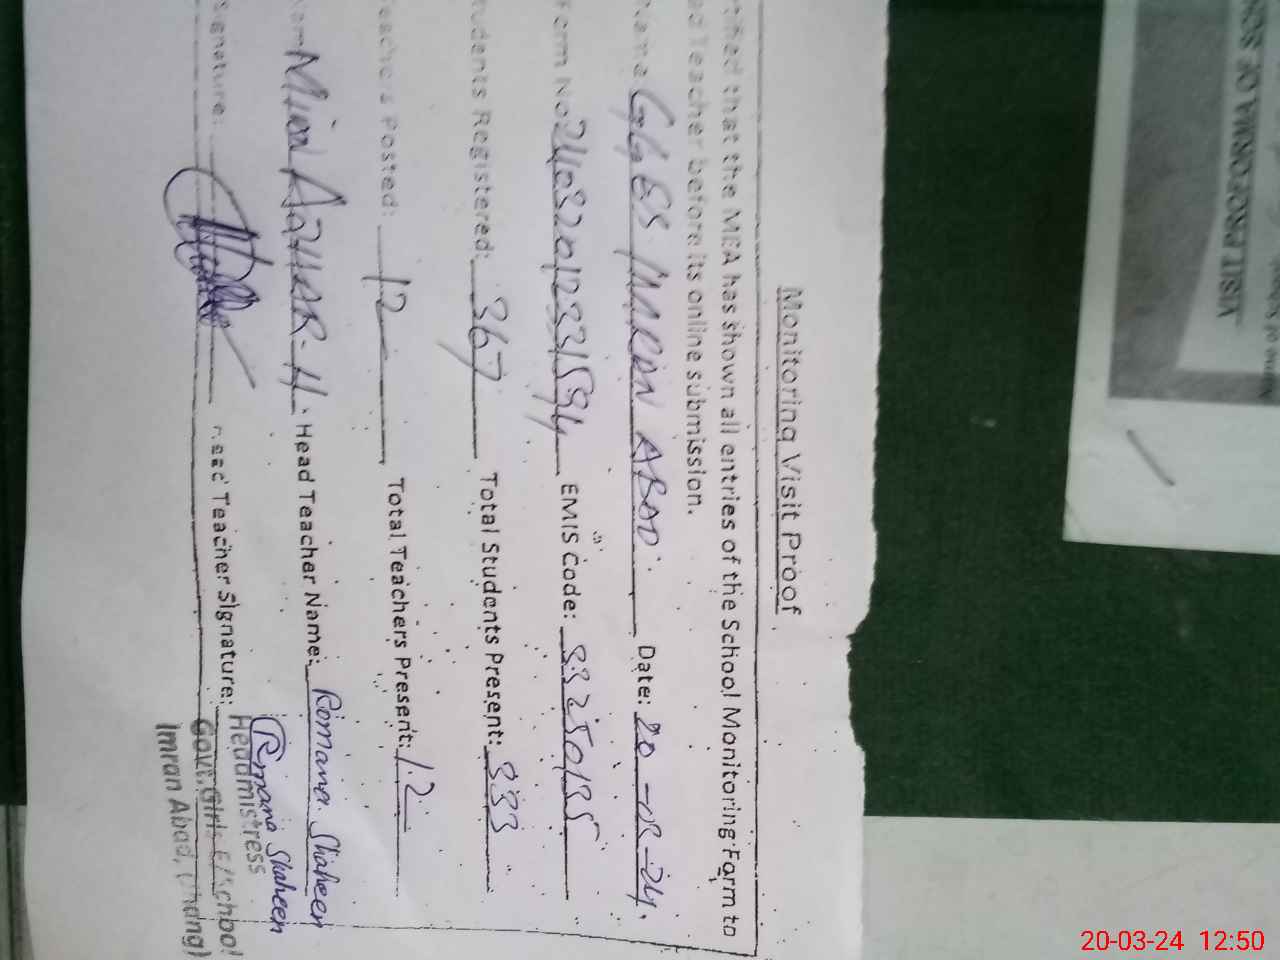 Monitoring Visit Proof
tified that the MEA has shown all entries of the School Monitoring Form to
ad Teacher before its online submission.
Name GGES IMRAN ABAD. Date: 20-03-24.
Form No EMIS Code: 33250135
tudents Registered: 367 Total Students Present: 333
eachers Posted: 12 Total Teachers Present: 12
Mian AZHAR-H. Head Teacher Name: Romana Shaheen
Signature: Head Teacher Signature: Romana Shaheen
Headmistress
Govt. Girls E/School
Imran Abad, (Jhang)
VISIT PROFORMA OF
20-03-24 12:50